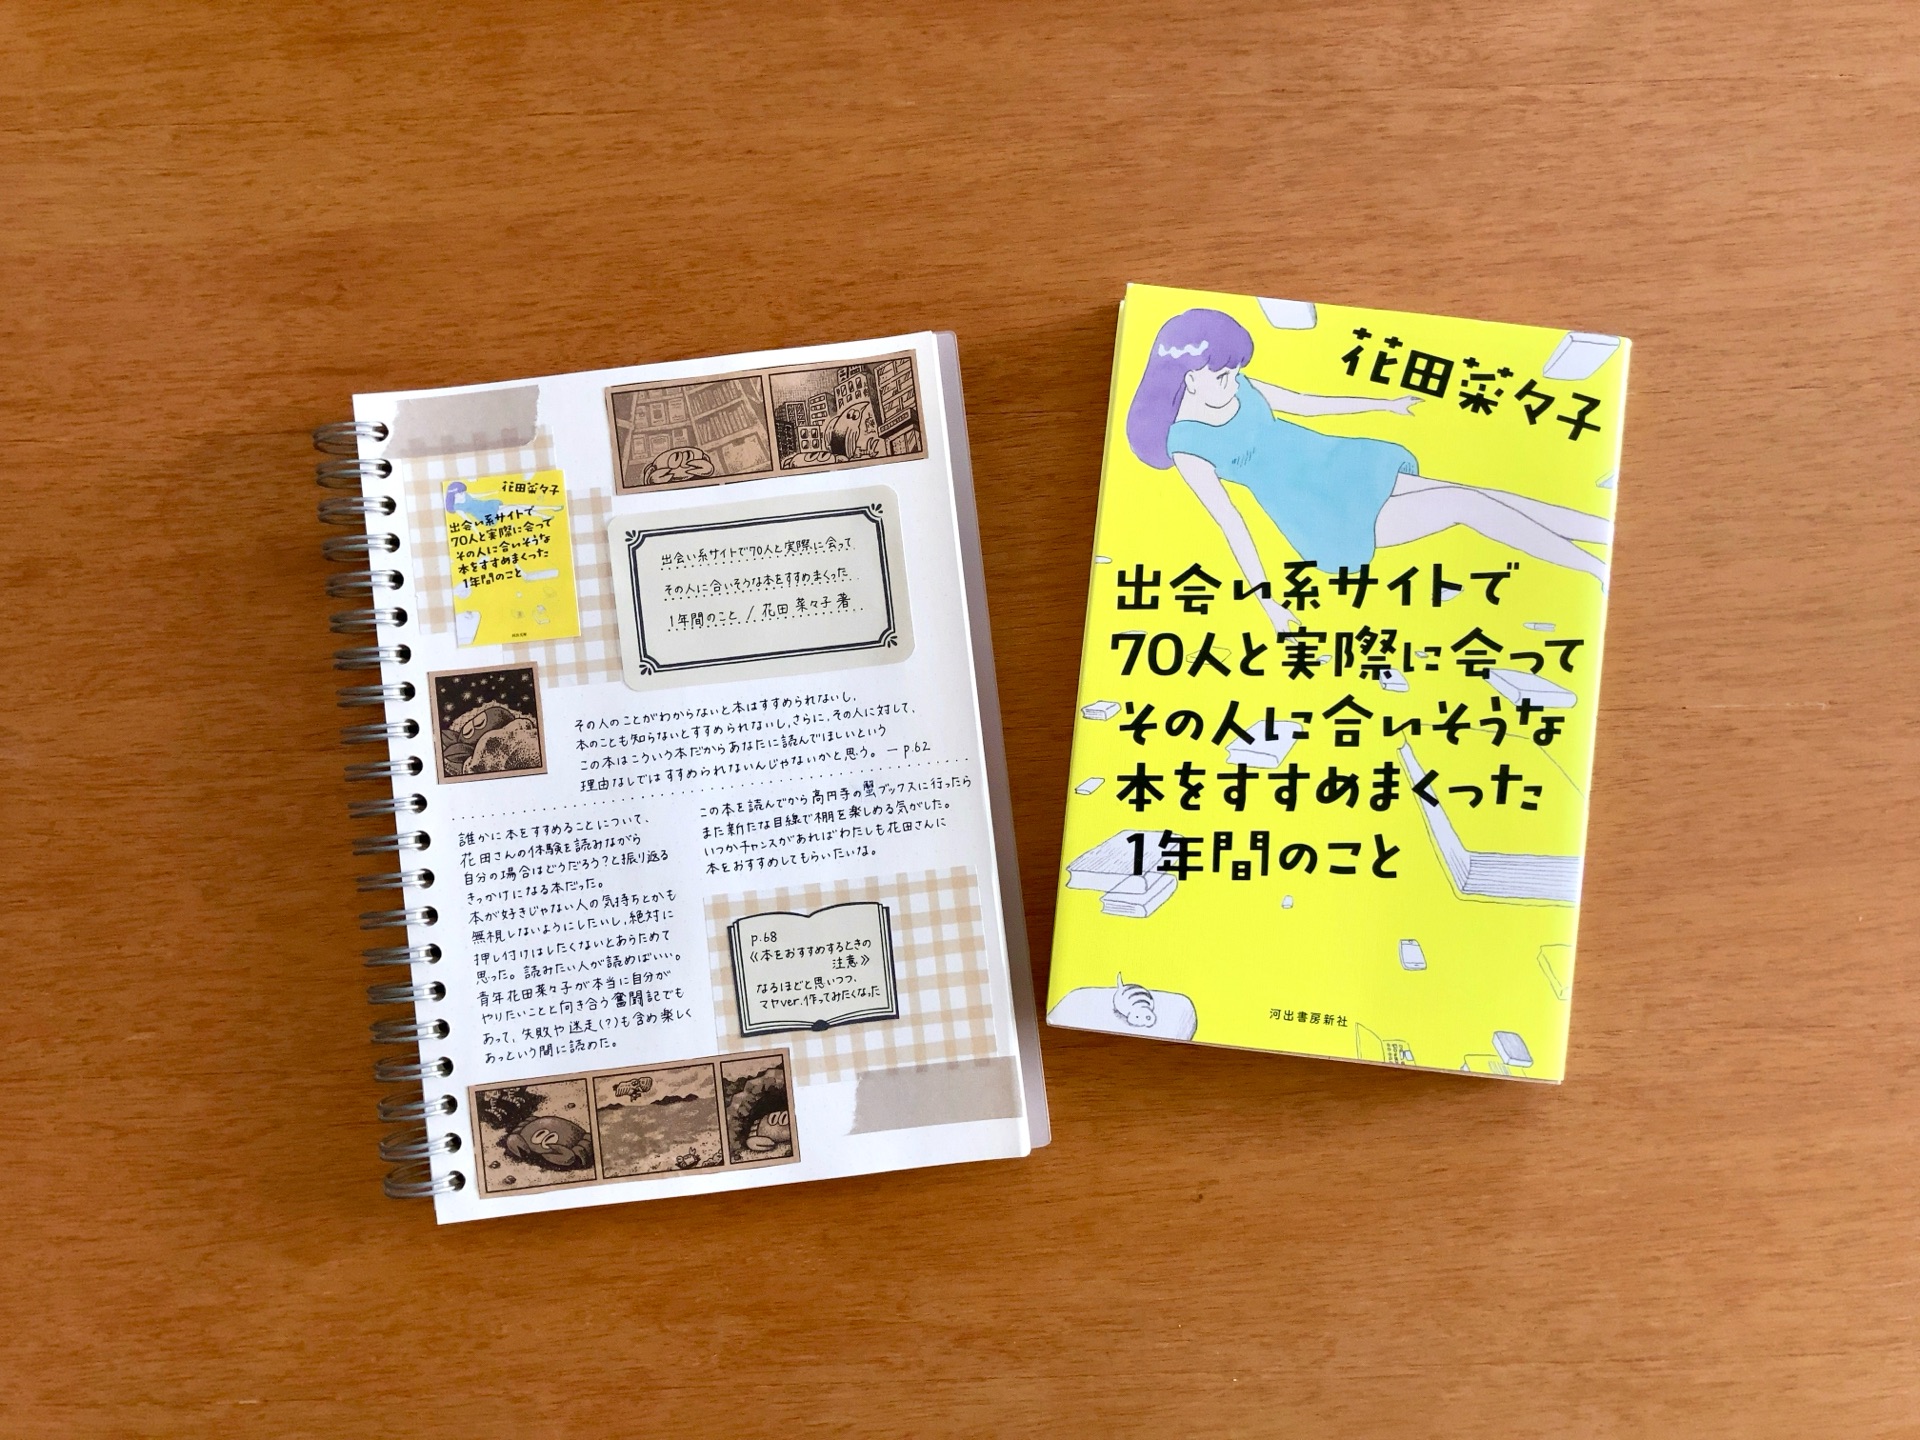 花田菜々子
出会い系サイトで
70人と実際に会って
その人に合いそうな
本をすすめまくった
1年間のこと
出会い系サイトで70人と実際に会って
その人に合いそうな本をすすめまくった
1年間のこと / 花田 菜々子 著
その人のことがわからないと本はすすめられないし、
本のことも知らないとすすめられないし、さらに、その人に対して、
この本はこういう本だからあなたに読んでほしいという
理由なしではすすめられないんじゃないかと思う。 ー p.62
誰かに本をすすめることについて、
花田さんの体験を読みながら
自分の場合はどうだろう?と振り返る
きっかけになる本だった。
本が好きじゃない人の気持ちとかも
無視しないようにしたいし、絶対に
押し付けはしたくないとあらためて
思った。読みたい人が読めばいい。
青年花田菜々子が本当に自分が
やりたいことと向き合う奮闘記でも
あって、失敗や迷走(?)も含め楽しく
あっという間に読めた。
この本を読んでから高円寺の蟹ブックスに行ったら
また新たな目線で棚を楽しめる気がした。
いつかチャンスがあればわたしも花田さんに
本をおすすめしてもらいたいな。
p.68
《本をおすすめするときの
注意》
なるほどと思いつつ、
マヤver.作ってみたくなった
花田菜々子
出会い系サイトで
70人と実際に会って
その人に合いそうな
本をすすめまくった
1年間のこと
河出書房新社